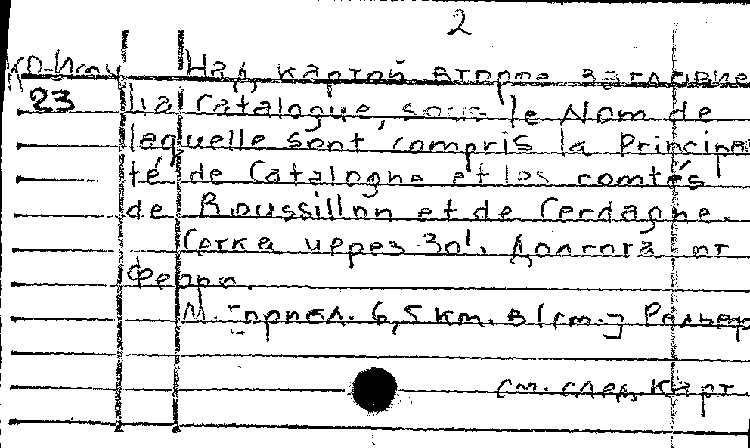 2
КО-Испу Над картой второе заглавие
23 La Catalogue, sous le Nom de
laquelle sont compris la Principau
té de Catalogne et les comtés
de Roussillon et de Cerdagne.
Сетка через 30'. Долгота от
Ферро.
М. [опред. 6,5 км. в 1 см.] Рельеф
см. след. карт